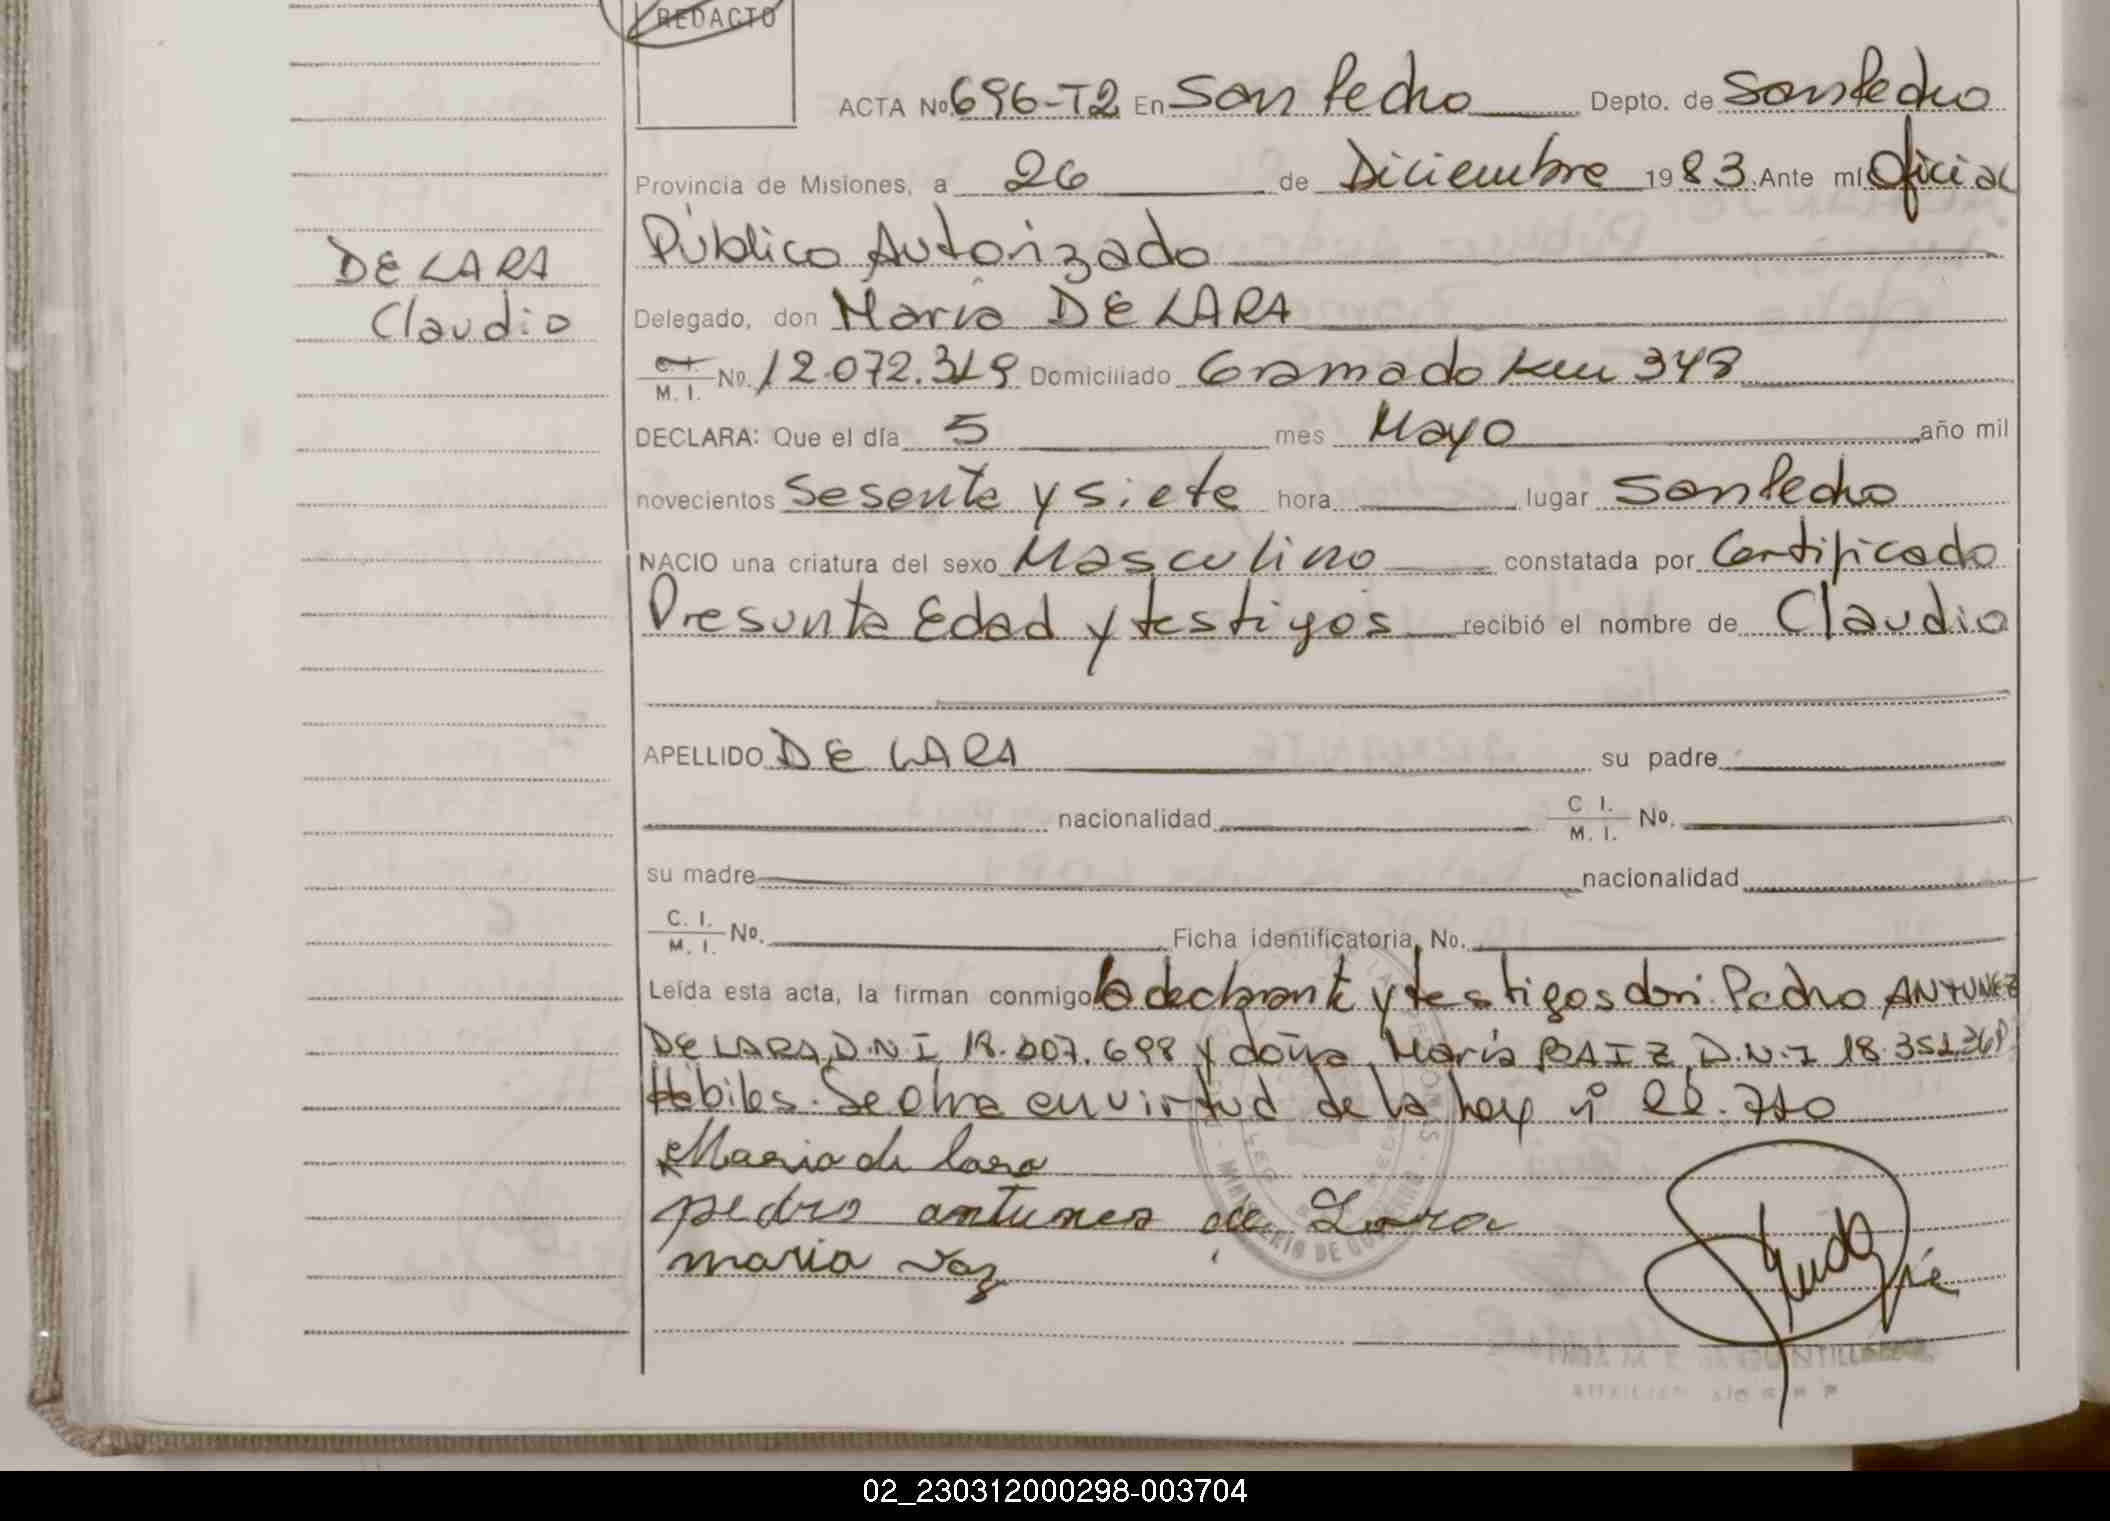 REDACTO
ACTA No. 696-T2 En San Pedro Depto. de San Pedro
Provincia de Misiones, a 26 de Diciembre 1983. Ante mí Oficial
Público Autorizado
DE LARA
Claudio
Delegado, don María DE LARA
C. I. M. I. No. 12.072.319 Domiciliado Gramado Km 348
DECLARA: Que el día 5 mes Mayo año mil
novecientos Sesenta y siete hora lugar San Pedro
NACIO una criatura del sexo Masculino constatada por Certificado
Presunta Edad y testigos recibió el nombre de Claudio
APELLIDO DE LARA su padre
nacionalidad C I. M. I. No.
su madre nacionalidad
C. I. M. I. No. Ficha identificatoria, No.
Leída esta acta, la firman conmigo la declarante y testigos don: Pedro ANTUNEZ
DE LARA, D.N.I 18.007.698 y doña María BAIZ, D.N.I
Hábiles. Se obra en virtud de la ley nº 22.710
Maria de Lara
pedro antunes de Lara
maria vaz
MINISTERIO DE GOBIERNO
02_230312000298-003704